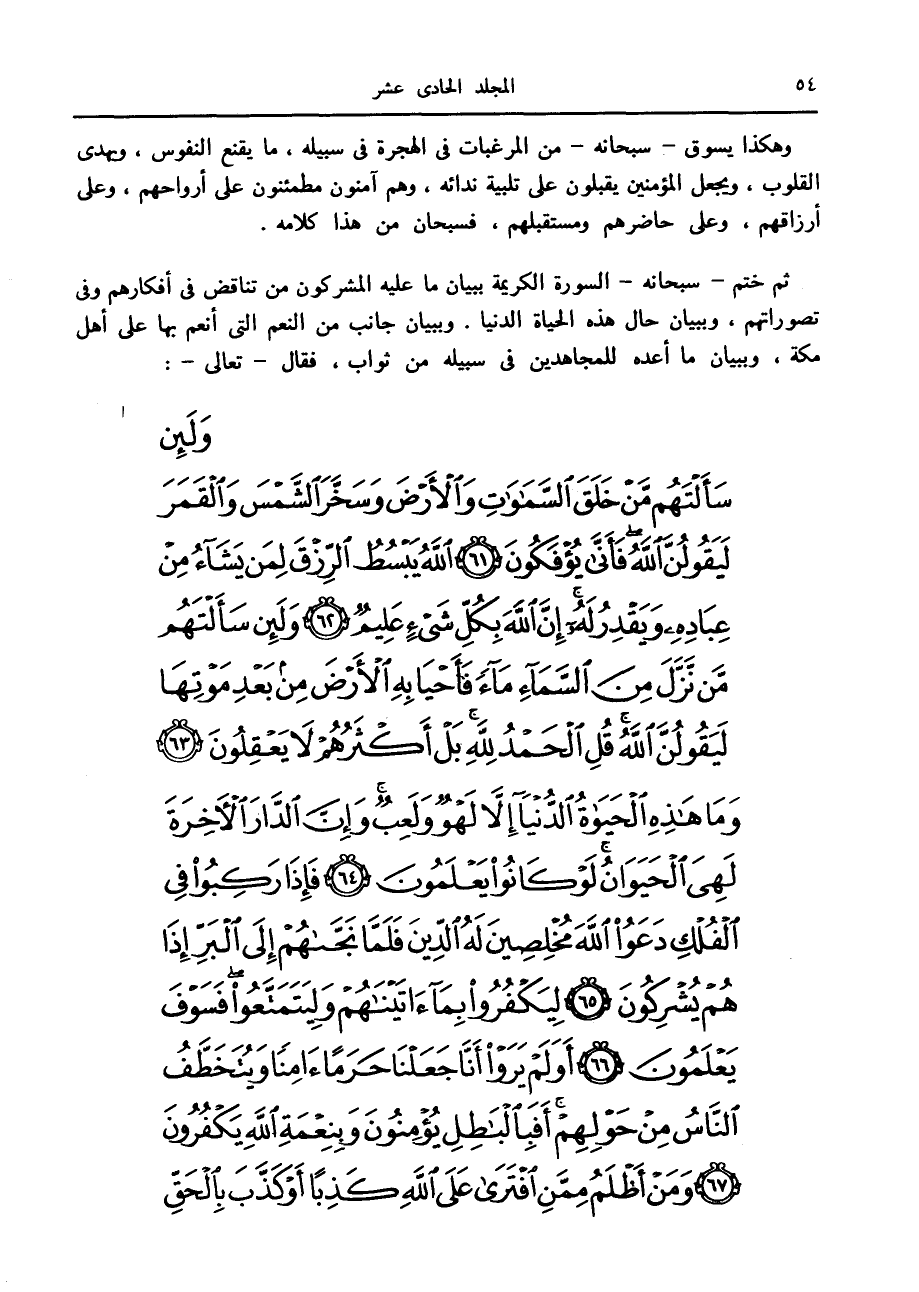 ٥٤ المجلد الحادى عشر
وهكذا يسوق - سبحانه - من المرغبات فى الهجرة فى سبيله ، ما يقنع النفوس ، ويهدى
القلوب ، ويجعل المؤمنين يقبلون على تلبية ندائه ، وهم آمنون مطمئنون على أرواحهم ، وعلى
أرزاقهم ، وعلى حاضرهم ومستقبلهم ، فسبحان من هذا كلامه .
ثم ختم - سبحانه - السورة الكريمة ببيان ما عليه المشركون من تناقض فى أفكارهم وفى
تصوراتهم ، وببيان حال هذه الحياة الدنيا . وببيان جانب من النعم التى أنعم بها على أهل
مكة ، وببيان ما أعده للمجاهدين فى سبيله من ثواب ، فقال - تعالى - :
وَلَئِن
سَأَلْتَهُم مَّنْ خَلَقَ ٱلسَّمَٰوَٰتِ وَٱلْأَرْضَ وَسَخَّرَ ٱلشَّمْسَ وَٱلْقَمَرَ
لَيَقُولُنَّ ٱللَّهُ ۖ فَأَنَّىٰ يُؤْفَكُونَ ﴿٦١﴾ ٱللَّهُ يَبْسُطُ ٱلرِّزْقَ لِمَن يَشَآءُ مِنْ
عِبَادِهِۦ وَيَقْدِرُ لَهُۥٓ ۚ إِنَّ ٱللَّهَ بِكُلِّ شَىْءٍ عَلِيمٌ ﴿٦٢﴾ وَلَئِن سَأَلْتَهُم
مَّن نَّزَّلَ مِنَ ٱلسَّمَآءِ مَآءً فَأَحْيَا بِهِ ٱلْأَرْضَ مِنۢ بَعْدِ مَوْتِهَا
لَيَقُولُنَّ ٱللَّهُ ۚ قُلِ ٱلْحَمْدُ لِلَّهِ ۚ بَلْ أَكْثَرُهُمْ لَا يَعْقِلُونَ ﴿٦٣﴾
وَمَا هَٰذِهِ ٱلْحَيَوٰةُ ٱلدُّنْيَآ إِلَّا لَهْوٌ وَلَعِبٌ ۚ وَإِنَّ ٱلدَّارَ ٱلْأَخِرَةَ
لَهِىَ ٱلْحَيَوَانُ ۚ لَوْ كَانُوا۟ يَعْلَمُونَ ﴿٦٤﴾ فَإِذَا رَكِبُوا۟ فِى
ٱلْفُلْكِ دَعَوُا۟ ٱللَّهَ مُخْلِصِينَ لَهُ ٱلدِّينَ فَلَمَّا نَجَّىٰهُمْ إِلَى ٱلْبَرِّ إِذَا
هُمْ يُشْرِكُونَ ﴿٦٥﴾ لِيَكْفُرُوا۟ بِمَآ ءَاتَيْنَٰهُمْ وَلِيَتَمَتَّعُوا۟ ۖ فَسَوْفَ
يَعْلَمُونَ ﴿٦٦﴾ أَوَلَمْ يَرَوْا۟ أَنَّا جَعَلْنَا حَرَمًا ءَامِنًا وَيُتَخَطَّفُ
ٱلنَّاسُ مِنْ حَوْلِهِمْ ۚ أَفَبِٱلْبَٰطِلِ يُؤْمِنُونَ وَبِنِعْمَةِ ٱللَّهِ يَكْفُرُونَ
﴿٦٧﴾ وَمَنْ أَظْلَمُ مِمَّنِ ٱفْتَرَىٰ عَلَى ٱللَّهِ كَذِبًا أَوْ كَذَّبَ بِٱلْحَقِّ